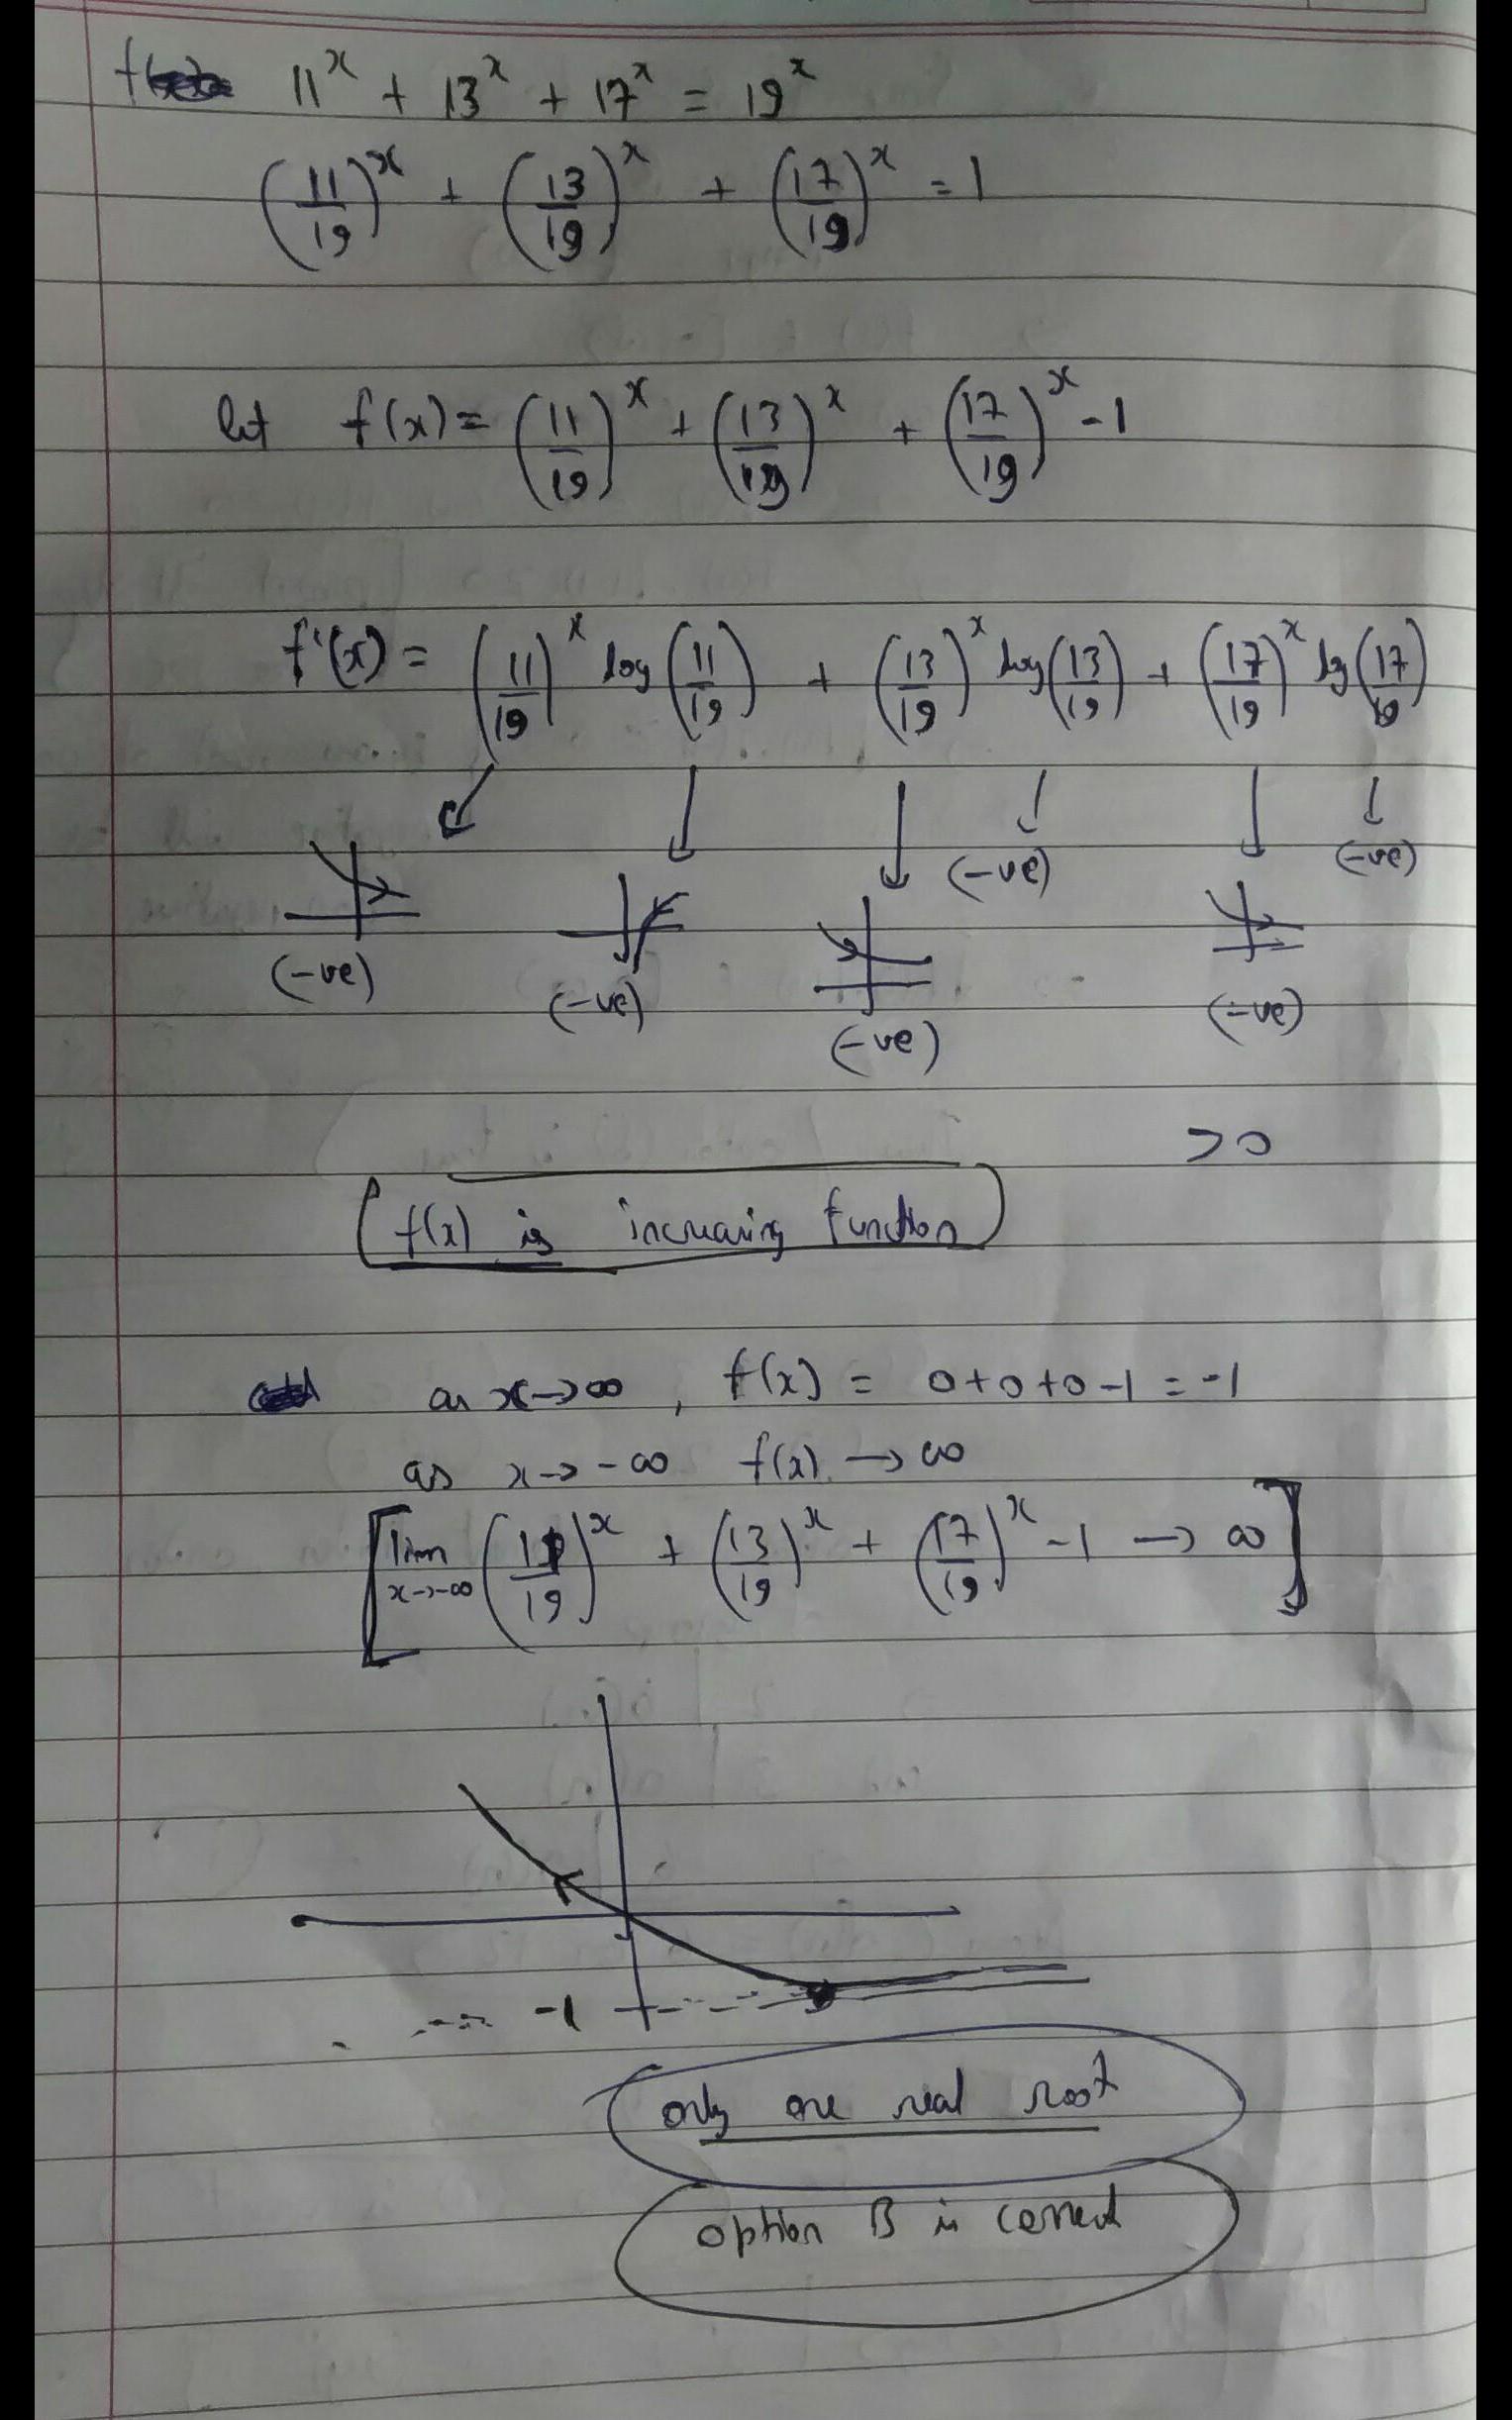 11^x + 13^x + 17^x = 19^x
(11/19)^x + (13/19)^x + (17/19)^x = 1
let f(x) = (11/19)^x + (13/19)^x + (17/19)^x - 1
f'(x) = (11/19)^x log(11/19) + (13/19)^x log(13/19) + (17/19)^x log(17/19)
(-ve) (-ve) (-ve) (-ve) (-ve) (-ve)
>0
f(x) is increasing function
as x→∞, f(x) = 0+0+0-1 = -1
as x→-∞ f(x) → ∞
[lim x→-∞ (11/19)^x + (13/19)^x + (17/19)^x - 1 → ∞]
-1
only one real root
option B is correct